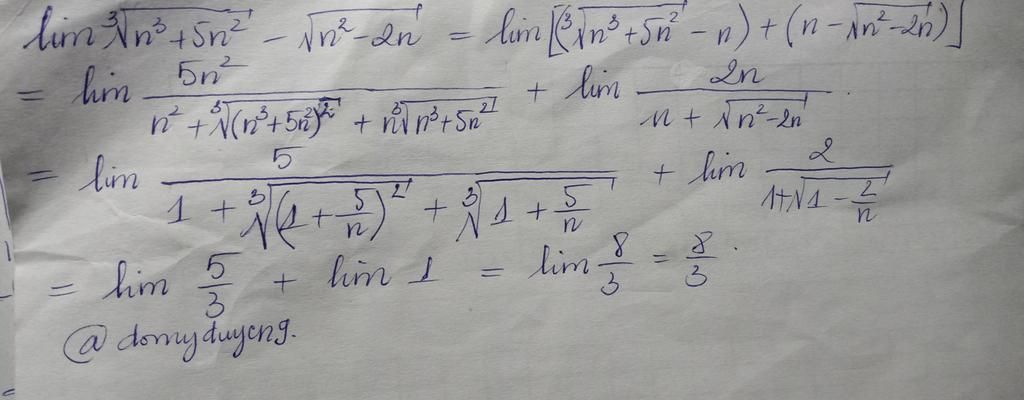 lim ∛(n³+5n²) − √(n²−2n) = lim [(∛(n³+5n²) − n) + (n − √(n²−2n))]
= lim 5n² / (n² + ∛((n³+5n²)²) + n∛(n³+5n²)) + lim 2n / (n + √(n²−2n)).
= lim 5 / (1 + ∛((1 + 5/n)²) + ∛(1 + 5/n)) + lim 2 / (1+√(1 − 2/n))
= lim 5/3 + lim 1 = lim 8/3 = 8/3.
@domyduyeng.
=